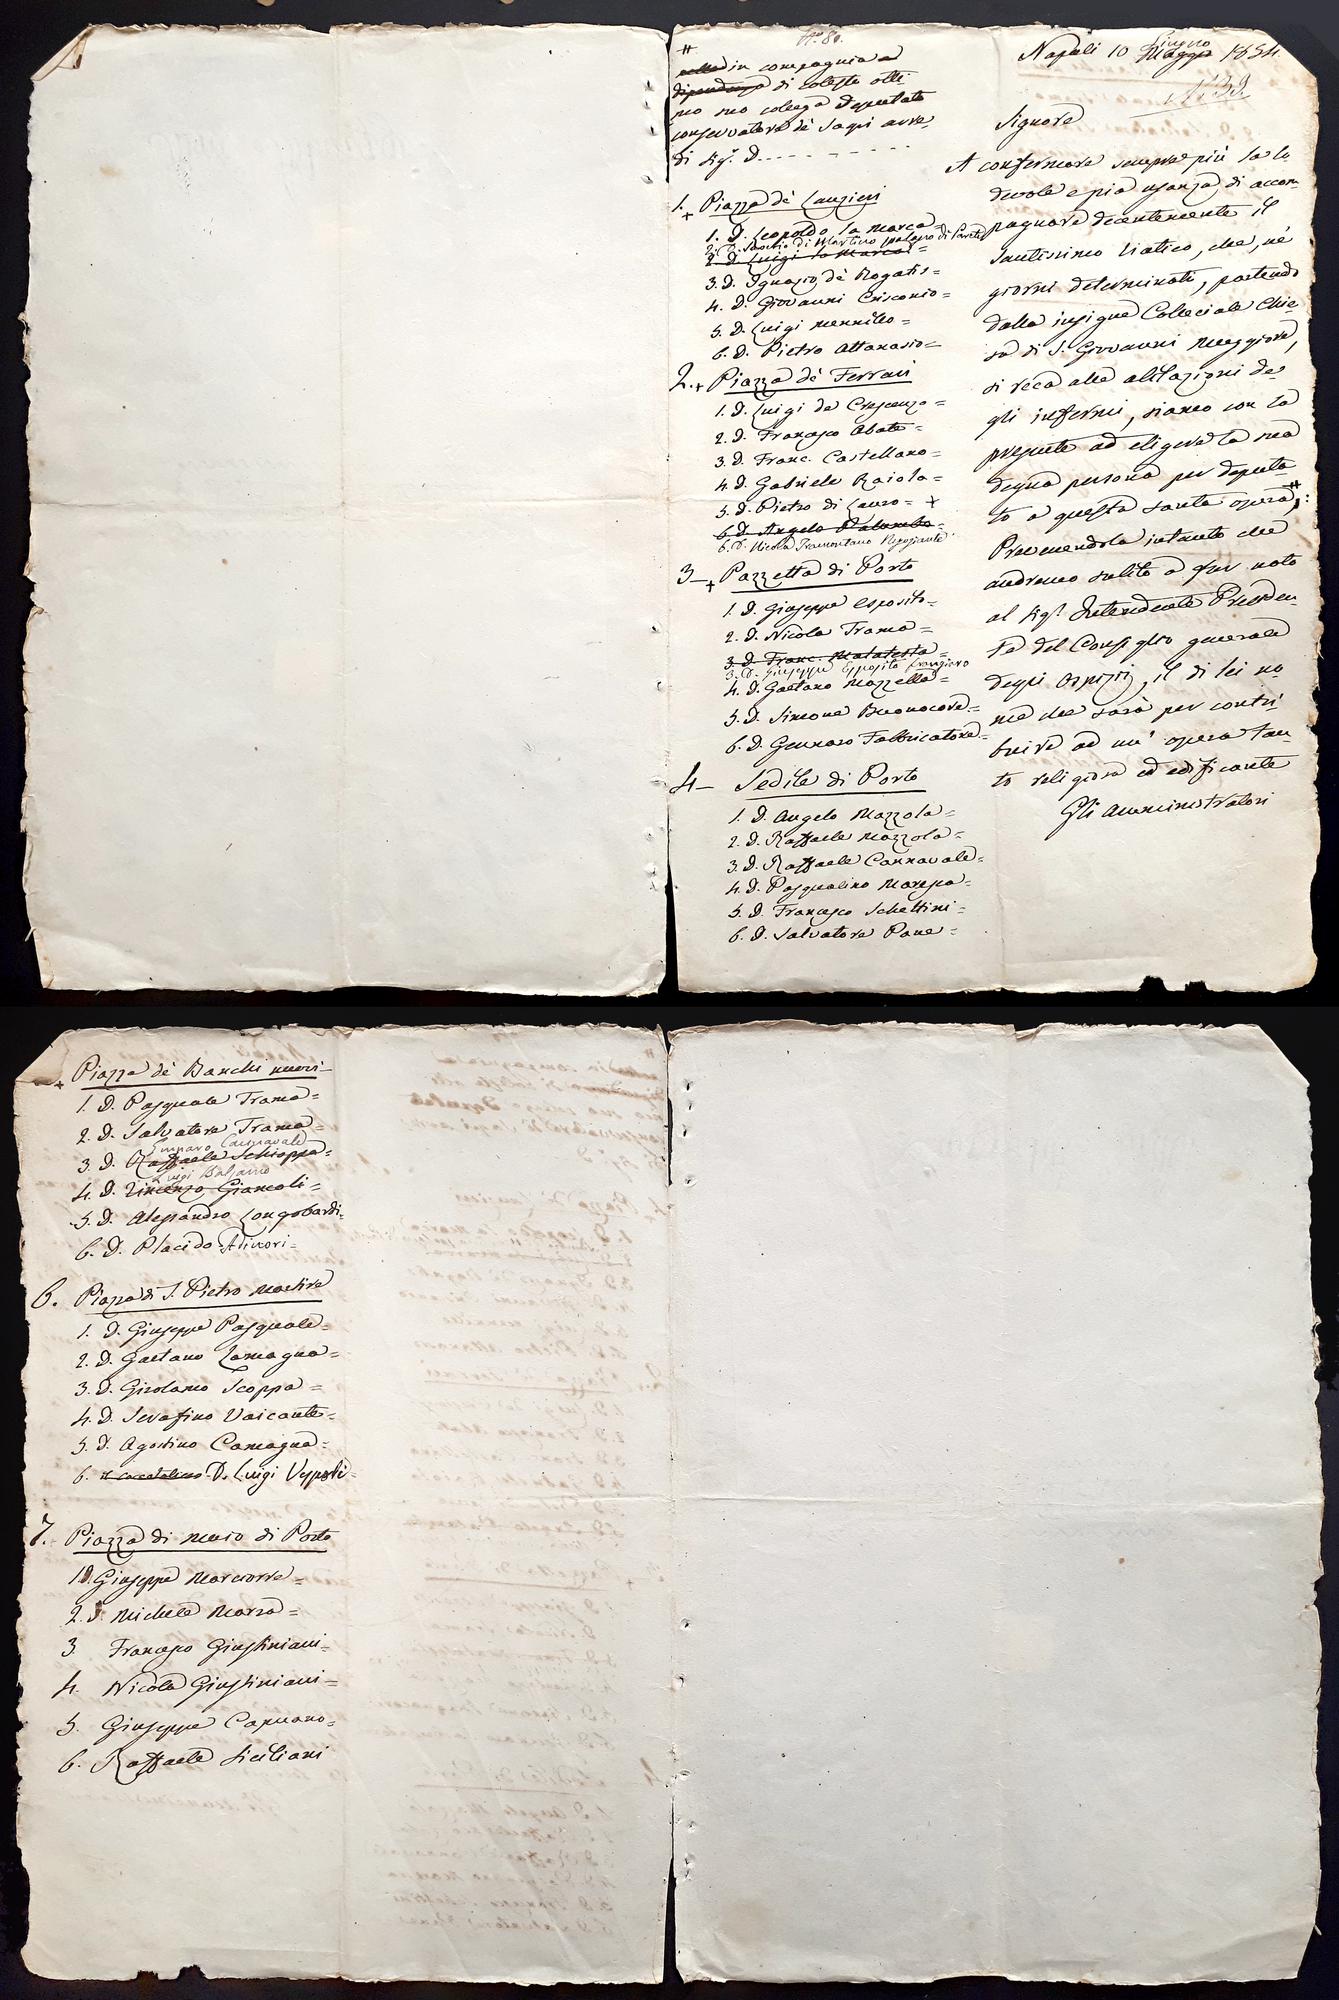 N.º 80.
#
in compagnia a
dipendenza di cotesto otti
mo suo collega deputato
conservatore de' sagri arre
di Sig.r D. - - - - - - -
1. + Piazza de' Lanzieri
1. D. Leopoldo la Marca =
2. D. di Martino
2. D. Luigi la Marca =
3. D. Ignazio de Rogatis =
4. D. Giovanni Crisconio =
5. D. Luigi Mennillo =
6. D. Pietro Attanasio =
2. + Piazza de' Ferrari
1. D. Luigi de Crescenzo =
2. D. Francesco Abate =
3. D. Franc. Castellano =
4. D. Gabriele Raiola =
5. D. Pietro di Lauro = +
6. D. Angelo Palumbo =
6. D. Nicola Tramontano Negoziante
3 - + Piazzetta di Porto
1. D. Giuseppe Esposito =
2. D. Nicola Trama =
3. D. Franc. Malatesta =
3. D. Giuseppe Esposito
4. D. Gaetano Mazzella =
5. D. Simone Buonocore =
6. D. Gennaro Fabbricatore =
4 - Sedile di Porto
1. D. Angelo Mazzola =
2. D. Raffaele Mazzola =
3. D. Raffaele Carnavale =
4. D. Pasqualino Maresca =
5. D. Francesco Schettini =
6. D. Salvatore Pane =
Giugno
Napoli 10 Maggio 1834
N.º 39
Signore
A confermare sempre più la lo
devole e pia usanza di accom
pagnare decentemente il
Santissimo Viatico, che, ne'
giorni determinati, partendo
dalla insigne Colleciale Chie
sa di S. Giovanni Maggiore,
si reca alle abitazioni de
gli infermi, siamo con la
presente ad eligere la sua
degna persona per deputa
to a questa santa opera #;:
Prevenendola intanto che
andremo subito a far noto
al Sig.r Intendente Presiden
te del Consiglio generale
degli Ospizj, il di lei no
me che sarà per contri
buire ad un' opera tan
to religiosa ed edificante
Gli Amministratori
+ Piazza de' Banchi nuovi -
1. D. Pasquale Trama =
2. D. Salvatore Trama =
Gennaro Carnavale
3. D. Raffaele Schioppa =
Luigi Balsamo
4. D. Vincenzo Giancoli =
5. D. Alessandro Longobardi =
6. D. Placido Adinori =
6. Piazza di S. Pietro Martire
1. D. Giuseppe Pasquale =
2. D. Gaetano Lamagna =
3. D. Girolamo Scoppa =
4. D. Serafino Vaicante =
5. D. Agostino Camagna =
6. D. Luigi
7. Piazza di Maio di Porto
1. D. Giuseppe =
2. D. Michele Marza =
3 Francesco Giustiniani =
4. Nicola Giustiniani =
5. Giuseppe Capuano =
6. Raffaele Siciliani